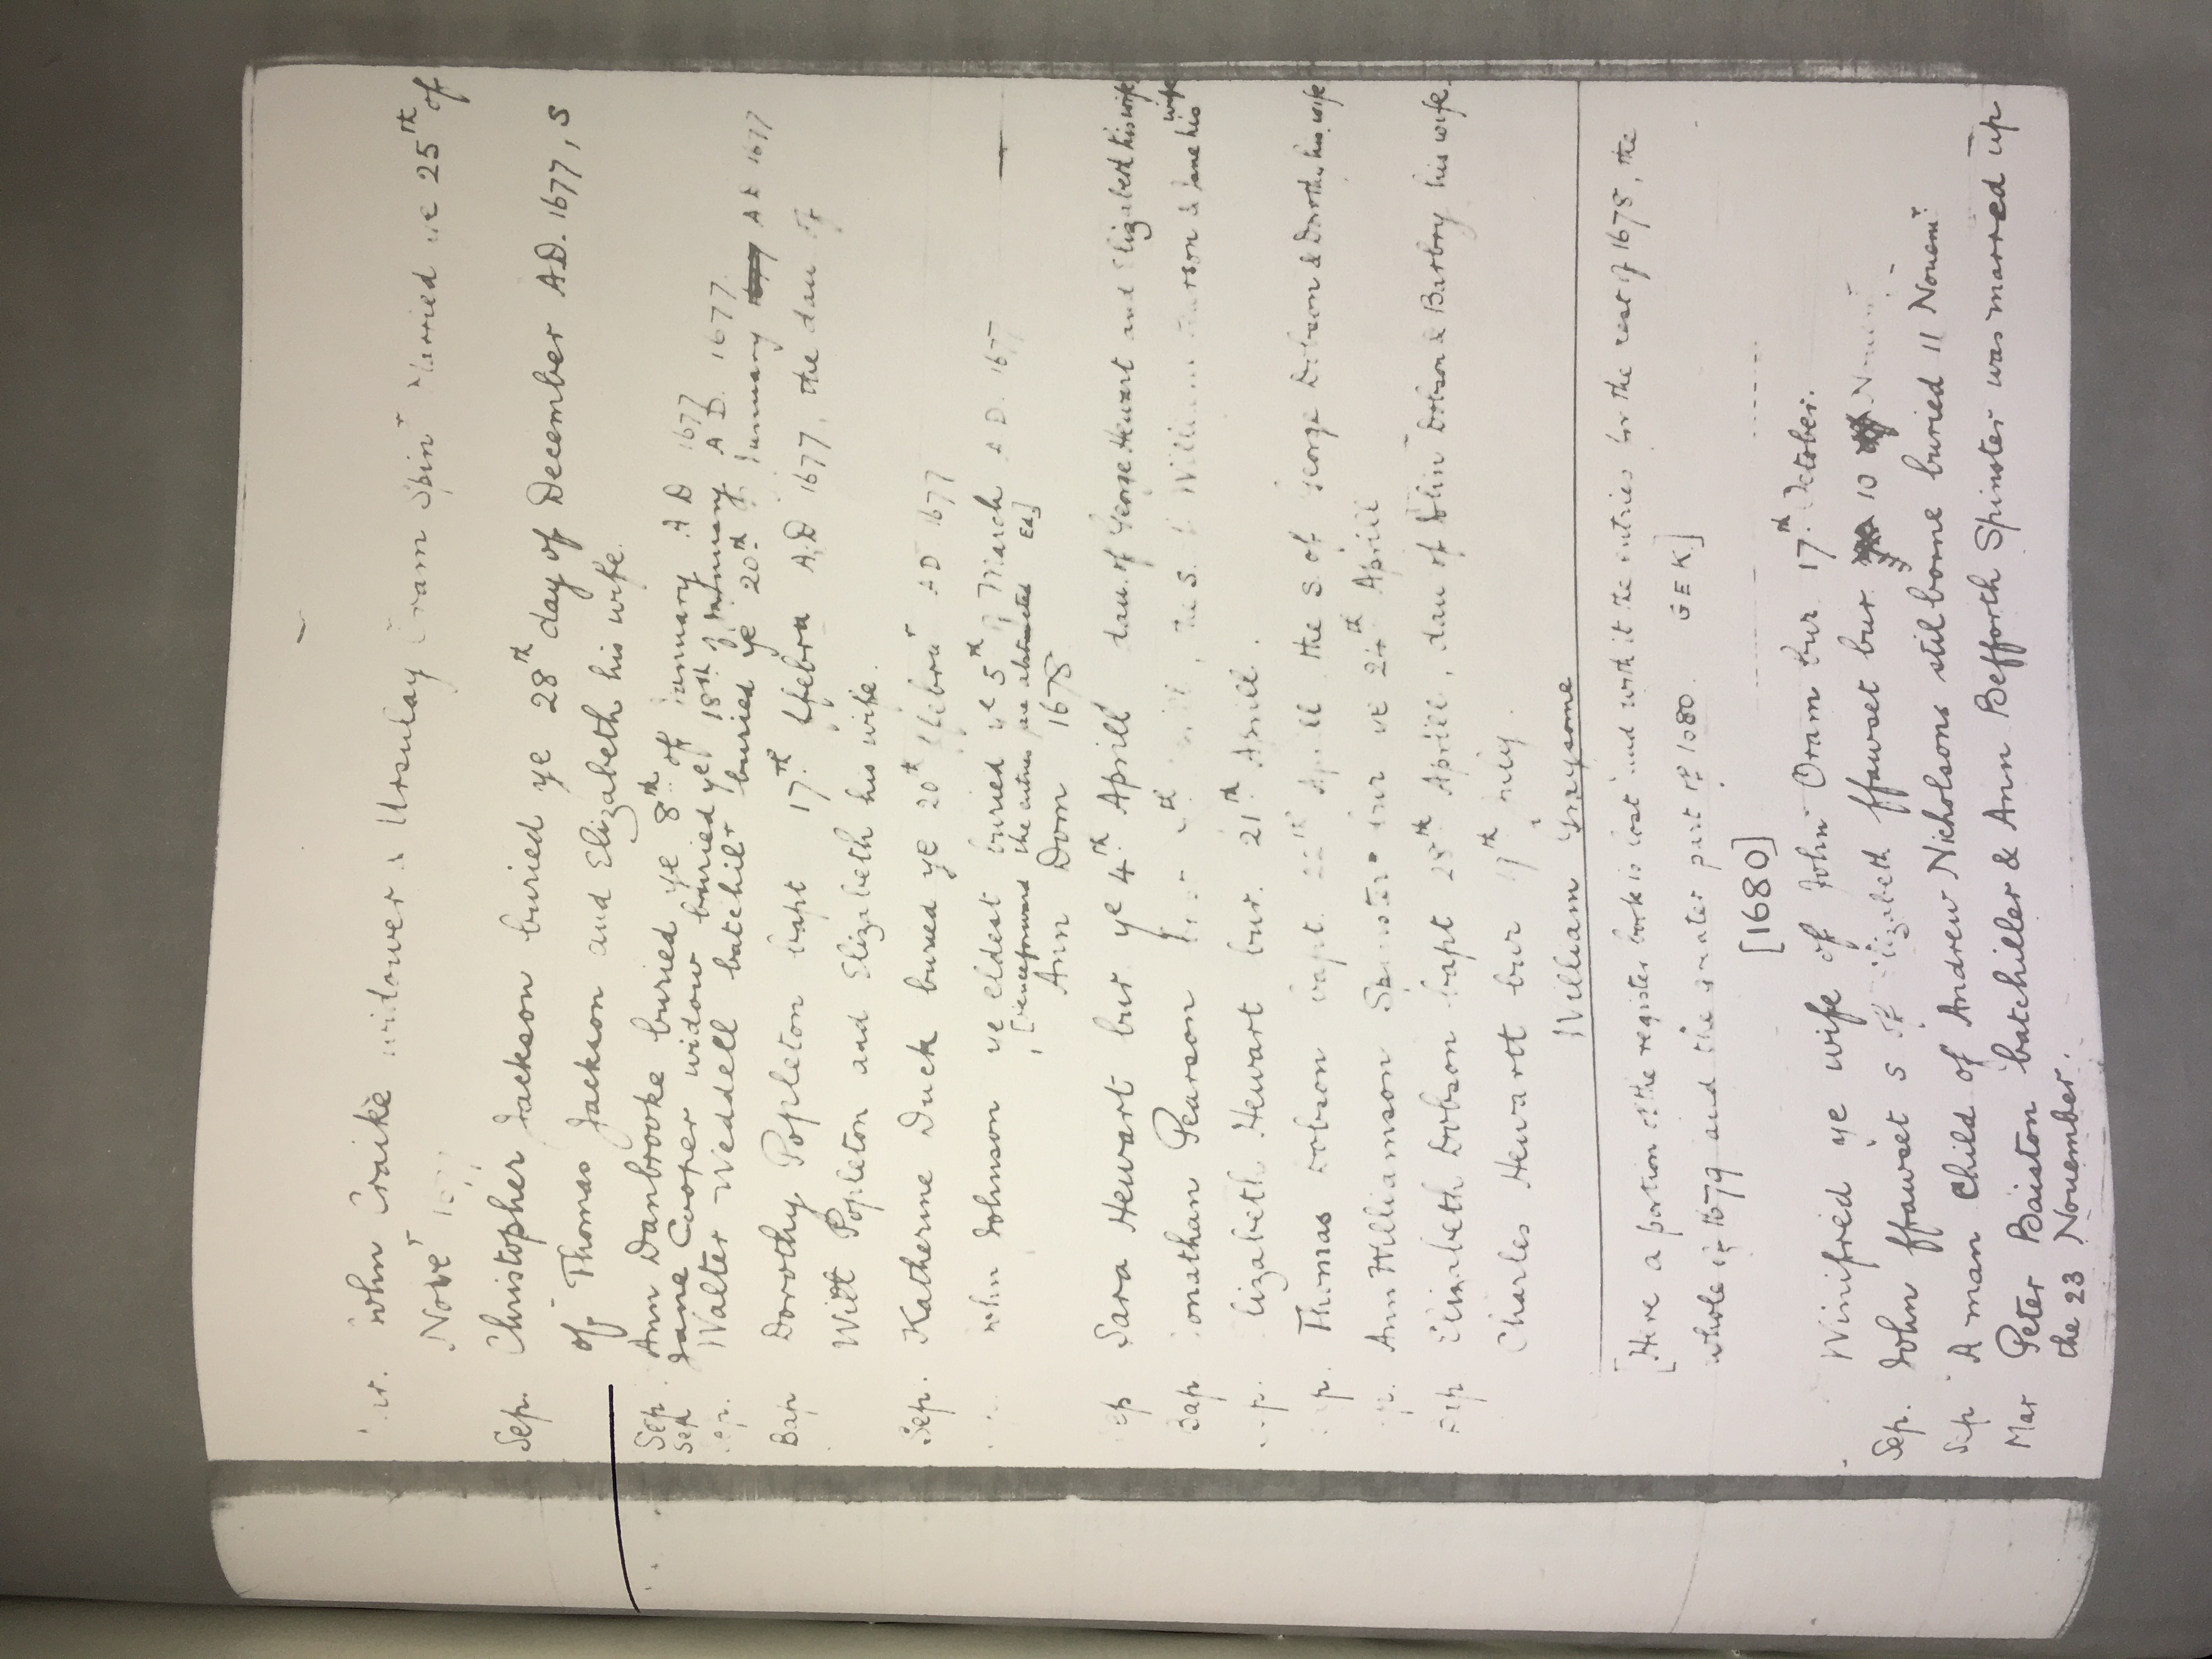 John Craike widower & Ursulay Oram Spinr Married ye 25th of
Novr
Sep. Christopher Jackson buried ye 28th day of December A.D. 1677, s
of Thomas Jackson and Elizabeth his wife.
Sep. Ann Danbrooke buried ye 8th of January A D 1677
Sep Jane Cooper widow buried ye 18th of January A D. 1677
Walter Weddell batchilr buried ye 20th of January A D 1677
Bap Dorothy Popleton bapt 17th ffebra A.D 1677, the dau of
Willm Popleton and Elizabeth his wife.
Sep. Katherine Duck buried ye 20th ffebrur AD 1677
John Johnson ye eldest buried ye 5th of March A D. 167
[henceforward the entries are abstracted Ed]
Ann Dom 1678
Sep Sara Hewart bur ye 4th Aprill dau. of George Hewart and Elizabeth his wife
Bap Jonathan Pearson the S. of William Pearson & Jane his wife
Elizabeth Hewart bur. 21th Aprill.
Thomas Dobson bapt. 22th Aprill the S. of George Dobson & Dorothy his wife
Ann Williamson Spinster bur ye 24th Aprill
Elizabeth Dobson bapt 28th Aprill, dau of John Dobson & Barbory his wife.
Charles Hewartt bur
William Graysone
[Here a portion of the register book is lost and with it the entries for the rest of 1678, the
whole of 1679 and the greater part of 1680. G E K]
[1680]
Winifred ye wife of John Oram bur 17th October.
Sep. John ffawset s of Elizabeth ffawset bur 10 Novemr
Sep A man Child of Andrew Nicholsons stilborne buried 11 Novemr
Mar Peter Baiston batchiller & Ann Befforth Spinster was marred up
the 23 November.